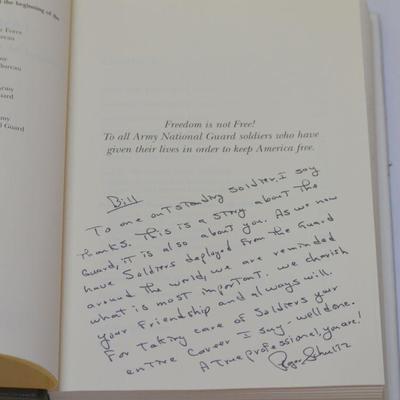 the beginning of the
Force
reau
or
ureau
rmy
uard
my
l Guard
Freedom is not Free!
To all Army National Guard soldiers who have
given their lives in order to keep America free.
Bill
To one outstanding soldier, I say
thanks. This is a story about the
Guard, it is also about you. As we now
have Soldiers deployed from the Guard
around the world, we are reminded
what is most important. We cherish
your Friendship and always will.
For taking care of Soldiers your
entire Career I say - well done.
A True Professional, you are!
Roger Schultz